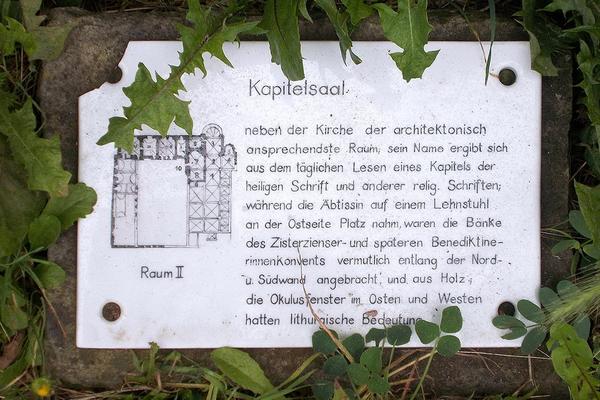 Kapitelsaal
neben der Kirche der architektonisch
ansprechendste Raum; sein Name ergibt sich
aus dem täglichen Lesen eines Kapitels der
heiligen Schrift und anderer relig. Schriften;
während die Äbtissin auf einem Lehnstuhl
an der Ostseite Platz nahm, waren die Bänke
des Zisterzienser- und späteren Benediktine-
rinnenKonvents vermutlich entlang der Nord-
u. Südwand angebracht, und aus Holz;
die "Okulusfenster" im Osten und Westen
hatten lithurgische Bedeutung
10
Raum II